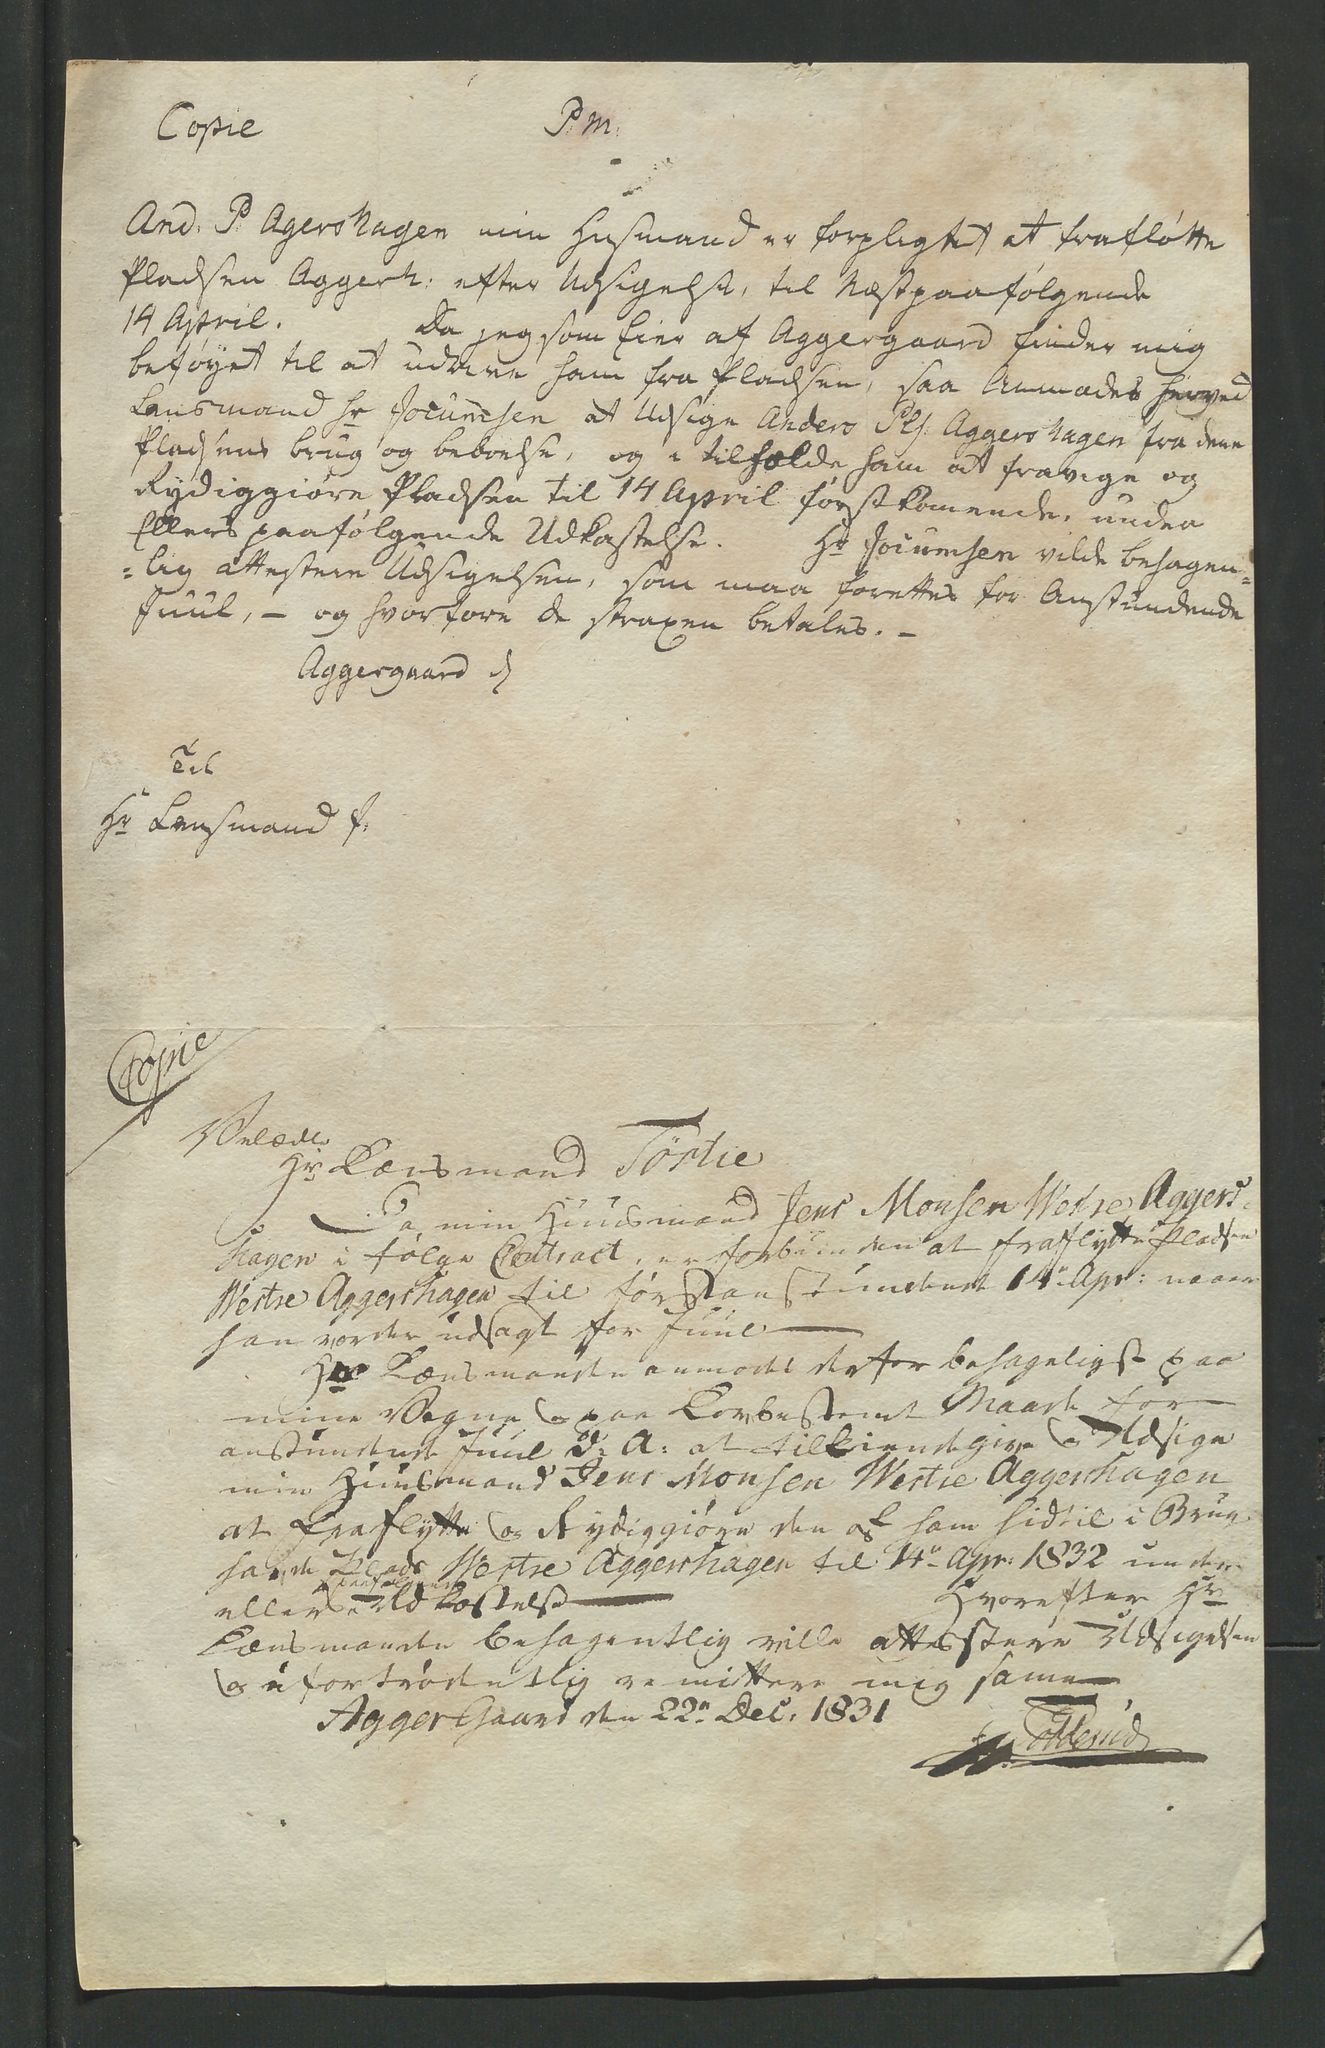 Copie P. M.
And. P. Agershagen min Husmand er forpligtet at frafløtte
Pladsen Aggerh: efter Udsigelse, til Næstpaafølgende
14 April. Da jeg som Eier af Aggergaard finder mig
beføyet til at udvise ham fra Pladsen, saa Anmodes herved
Lensmand Hr Jocumsen at Udsige Anders Ps. Aggershagen fra dene
Pladsens brug og beboelse, og i tilholde ham at fravige og
Rydiggiøre Pladsen til 14 April førstkomende, under
Ellers paafølgende Udkastelse. Hr Jocumsen vilde behagen=
=lig attestere Udsigelsen, som maa forettes for Anstundende
Juul, – og hvorfore de straxen betales. –
Aggergaard d
Til
Hr Lensmand J.
Copie
Velædle
Hr Lænsmand Tørtie
Da min Huusmand Jens Monsen Westre Aggers
hagen i følge Contract, er forbunden at fraflytte Pladsen
Westre Aggershagen til førstanstundende 14de Apr: naar
han vorder udsagt for Juul
Hr Lænsmanden anmodes derfor behageligst paa
mine Vegne og paa Lovbestemt Maade for
anstundende Juul d. A: at tilkiendegive og Udsige
min Huusmand Jens Monsen Westre Aggershagen
at fraflytte og Rydiggiøre den af ham hidtil i Brug
havde Plads Westre Aggershagen til 14de Apr: 1832 under
ellers paafølgende Udkastelse Hvorefter Hr
Lænsmanden behagentlig ville attestere Udsigelsen
og ufortrødentlig remittere mig same
Agger Gaard den 22de Dec. 1831